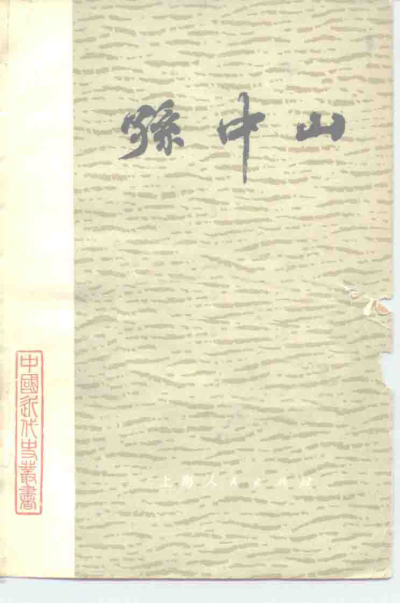 孫中山
中國近代史叢書
上海人民出版社